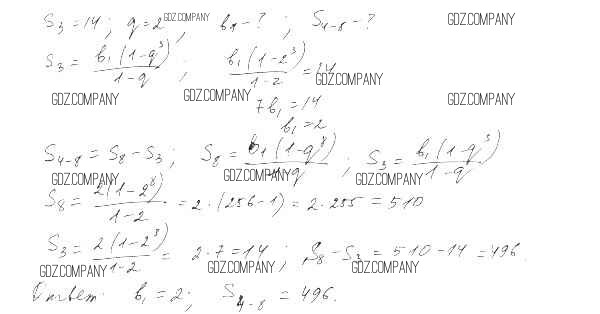 S₃ = 14; q = 2 GDZ.COMPANY b₁ - ?; S₄₋₈ - ? GDZ.COMPANY
S₃ = b₁(1-q³)/1-q; b₁(1-2³)/1-2 = 14 GDZ.COMPANY
GDZ.COMPANY GDZ.COMPANY 7b₁ = 14 GDZ.COMPANY
b₁ = 2
S₄₋₈ = S₈ - S₃; S₈ = b₁(1-q⁸)/1-q; S₃ = b₁(1-q³)/1-q
GDZ.COMPANY GDZ.COMPANY GDZ.COMPANY
S₈ = 2(1-2⁸)/1-2 = 2·(256-1) = 2·255 = 510
S₃ = 2(1-2³)/1-2 = 2·7 = 14; S₈ - S₃ = 510 - 14 = 496.
GDZ.COMPANY GDZ.COMPANY GDZ.COMPANY
Ответ: b₁ = 2; S₄₋₈ = 496.